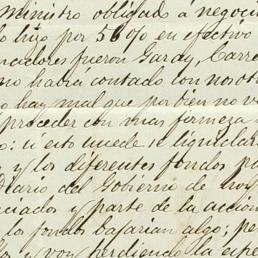 Ministro obligado á negoci
lo hizo por 50% en efectivo
cadores fueron Garay, Carre
no había contado con nosot
no hay mal que por bien no v
proceder con mas firmeza
o: si esto sucede se liquidara
y los diferentes fondos pu
Diario del Gobierno de hoy
nciados y parte de la accion
los fondos bajarian algo; pe
y voy perdiendo la espe